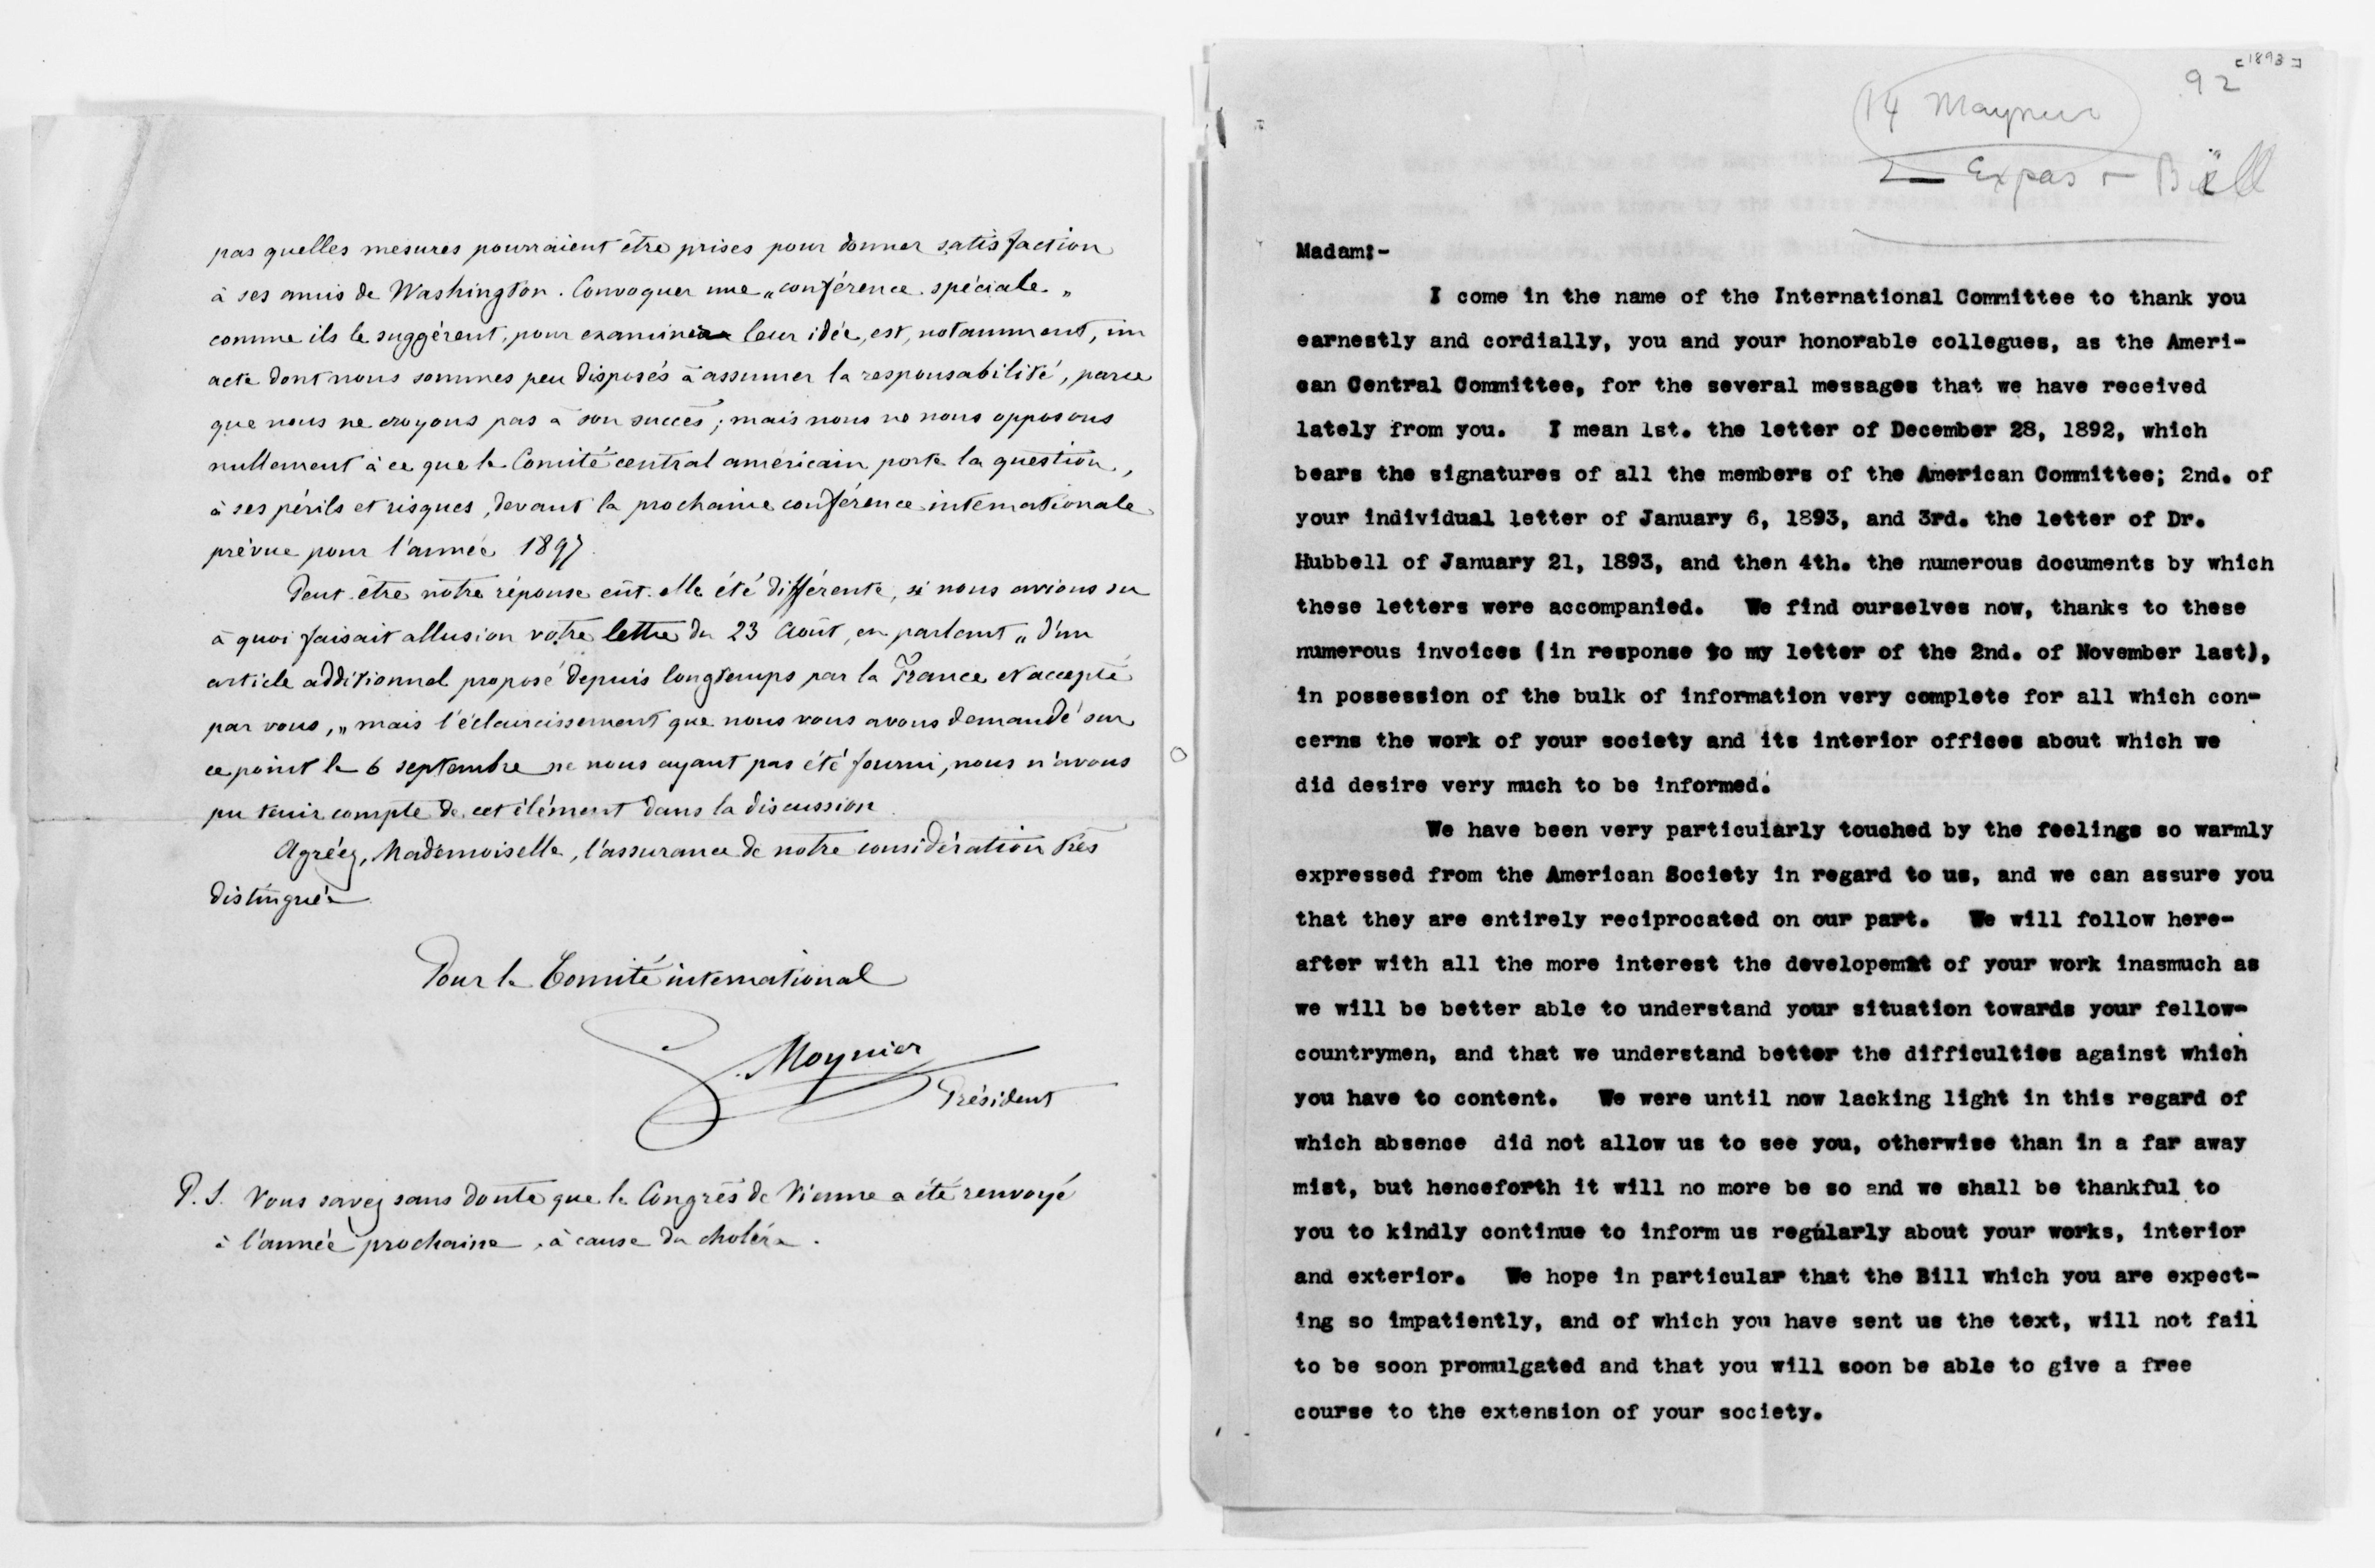 pas quelles mesures pourraient être prises pour donner satisfaction
à ses amis de Washington. Convoquer une „conférence spéciale„
comme ils le suggèrent, pour examiner leur idée, est, notamment, un
acte dont nous sommes peu disposés à assumer la responsabilité, parce
que nous ne croyons pas à son succès; mais nous ne nous opposons
nullement à ce que le Comité central américain porte la question,
à ses périls et risques, devant la prochaine conférence internationale
prévue pour l'année 1897.
Peut-être notre réponse eût-elle été différente, si nous avions su
à quoi faisait allusion votre lettre du 23 Août, en parlant „d'un
article additionnel proposé depuis longtemps par la France et accepté
par vous,„ mais l'éclaircissement que nous vous avons demandé sur
ce point le 6 septembre ne nous ayant pas été fourni, nous n'avons
pu tenir compte de cet élément dans la discussion.
Agréez, Mademoiselle, l'assurance de notre considération très
distinguée.
Pour le Comité international
G. Moynier
Président
P. S. Vous savez sans doute que le Congrès de Vienne a été renvoyé
à l'année prochaine, à cause du choléra.
[1893]
92
14 Moynier
Expos - Bill
Madam:-
I come in the name of the International Committee to thank you
earnestly and cordially, you and your honorable collegues, as the Ameri-
can Central Committee, for the several messages that we have received
lately from you. I mean 1st. the letter of December 28, 1892, which
bears the signatures of all the members of the American Committee; 2nd. of
your individual letter of January 6, 1893, and 3rd. the letter of Dr.
Hubbell of January 21, 1893, and then 4th. the numerous documents by which
these letters were accompanied. We find ourselves now, thanks to these
numerous invoices (in response to my letter of the 2nd. of November last),
in possession of the bulk of information very complete for all which con-
cerns the work of your society and its interior offices about which we
did desire very much to be informed.
We have been very particularly touched by the feelings so warmly
expressed from the American Society in regard to us, and we can assure you
that they are entirely reciprocated on our part. We will follow here-
after with all the more interest the developemnt of your work inasmuch as
we will be better able to understand your situation towards your fellow-
countrymen, and that we understand better the difficulties against which
you have to content. We were until now lacking light in this regard of
which absence did not allow us to see you, otherwise than in a far away
mist, but henceforth it will no more be so and we shall be thankful to
you to kindly continue to inform us regularly about your works, interior
and exterior. We hope in particular that the Bill which you are expect-
ing so impatiently, and of which you have sent us the text, will not fail
to be soon promulgated and that you will soon be able to give a free
course to the extension of your society.